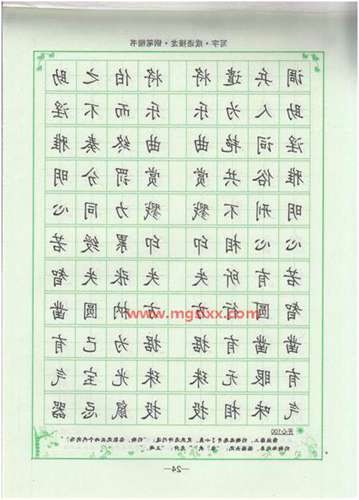 写字·成语接龙·钢笔楷书
调兵遣将将伯之助
助人为乐乐而不淫
淫词艳曲曲终奏雅
雅俗共赏赏罚分明
明刑不戮戮力同心
心心相印印累绶若
若有所失失张失智
智圆行方方枘圆凿
www.mgsxx.com
凿凿有据据为己有
有眼无珠珠光宝气
气味相投投鼠忌器
开心100
—24—